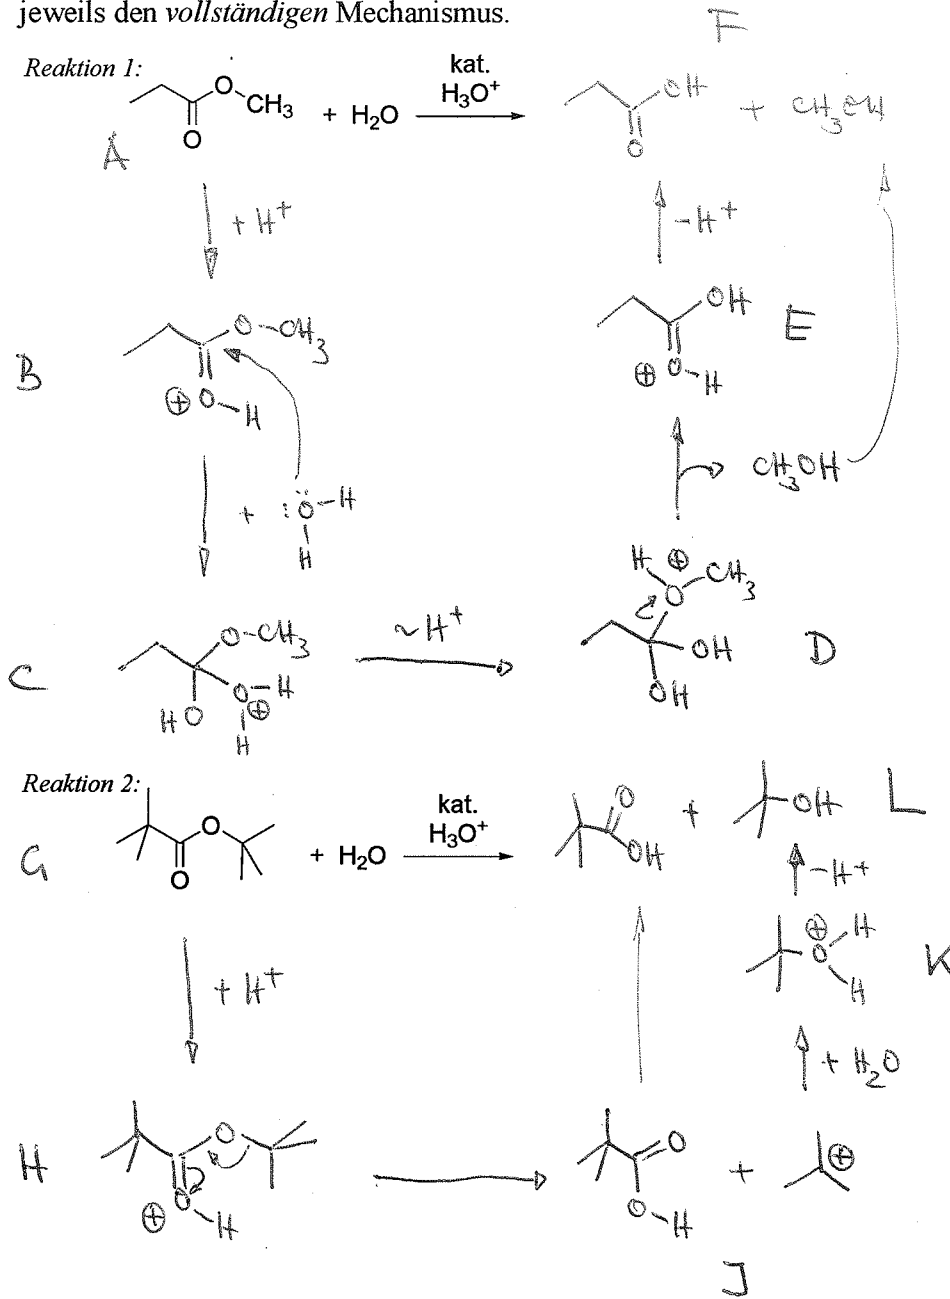 jeweils den vollständigen Mechanismus.
F
Reaktion 1:
O CH₃ O
+ H₂O
kat.
H₃O⁺
OH O
+ CH₃OH
A
+ H⁺
- H⁺
B
O-CH₃
⊕ O-H
+ :Ö-H
H
OH
⊕ O-H
E
CH₃OH
C
O-CH₃
HO O-H ⊕
H
~H⁺
H ⊕ CH₃
O
OH
OH
D
Reaktion 2:
G
O
O
+ H₂O
kat.
H₃O⁺
O
OH
+
OH
L
- H⁺
⊕ H
O
H
K
+ H⁺
+ H₂O
H
O
⊕ O-H
O
O-H
+
⊕
J